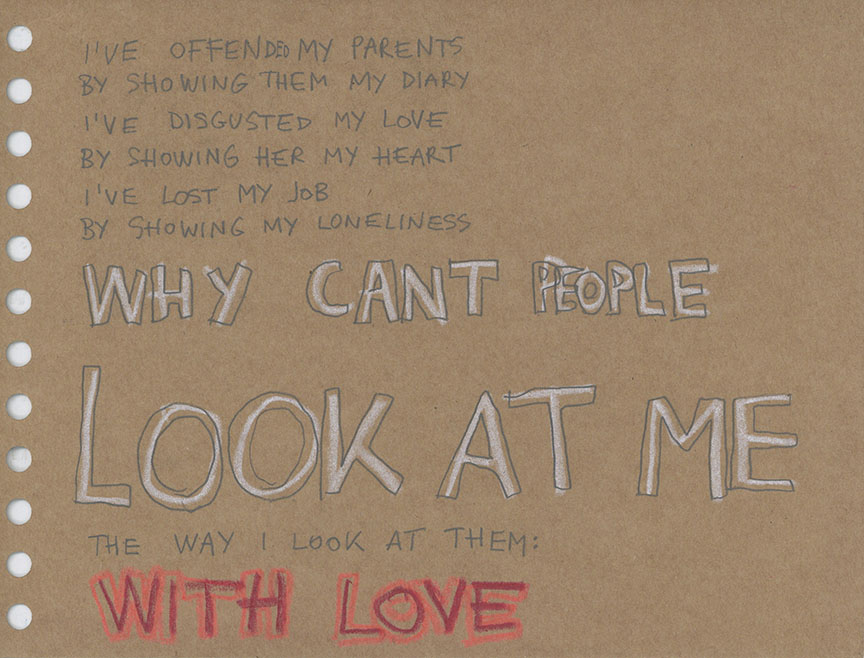 I'VE OFFENDED MY PARENTS
BY SHOWING THEM MY DIARY
I'VE DISGUSTED MY LOVE
BY SHOWING HER MY HEART
I'VE LOST MY JOB
BY SHOWING MY LONELINESS
WHY CANT PEOPLE
LOOK AT ME
THE WAY I LOOK AT THEM:
WITH LOVE